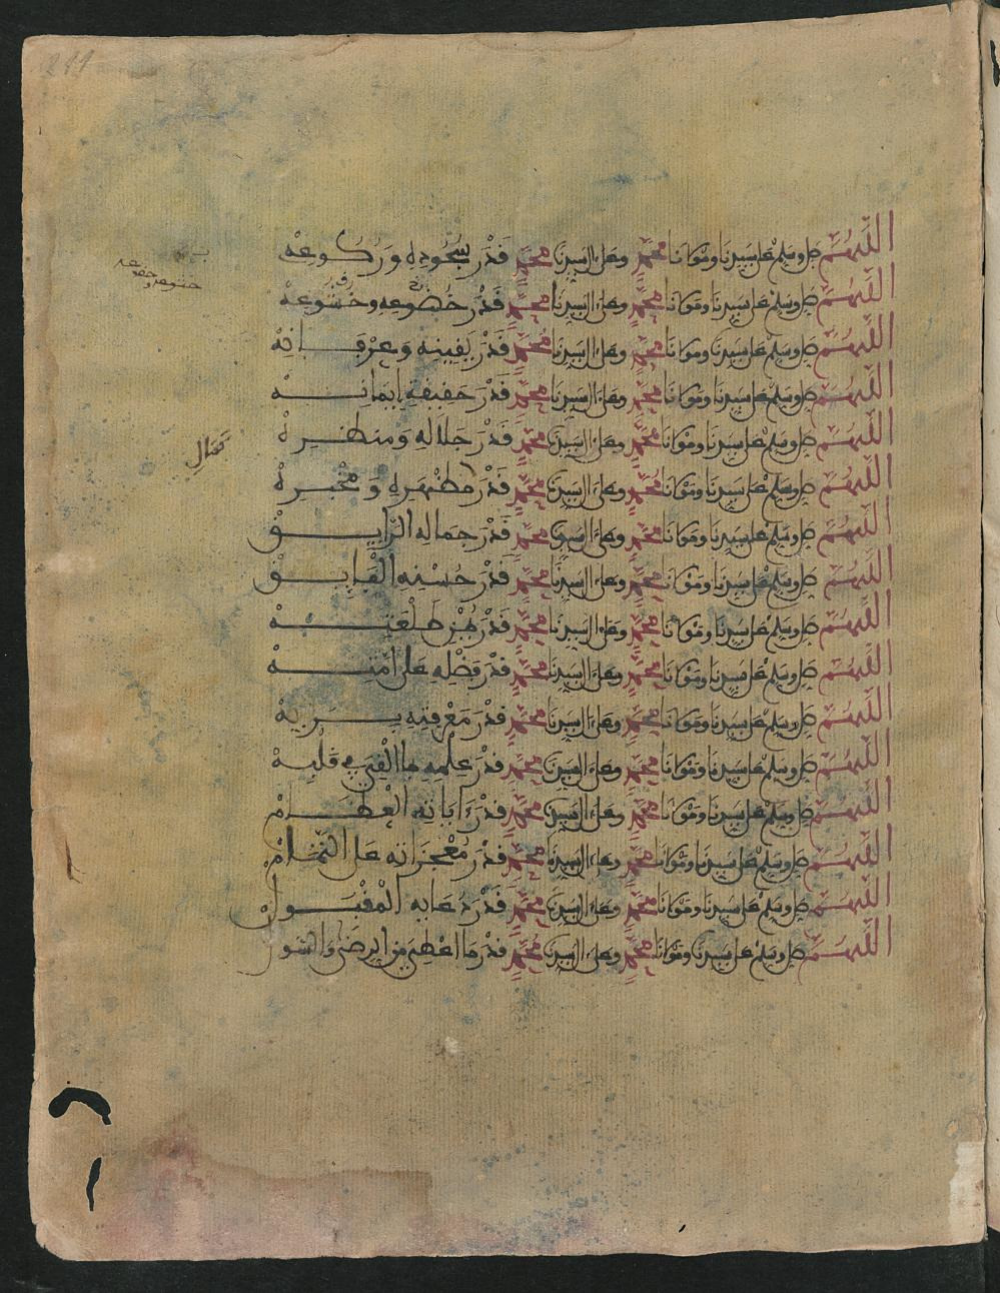 اللهم صل وسلم على سيدنا ومولانا محمد وعلى ءال سيدنا محمد قدر سجوده وركوعه
اللهم صل وسلم على سيدنا ومولانا محمد وعلى ءال سيدنا محمد قدر خضوعه وخشوعه
اللهم صل وسلم على سيدنا ومولانا محمد وعلى ءال سيدنا محمد قدر يقينه وعرفانه
اللهم صل وسلم على سيدنا ومولانا محمد وعلى ءال سيدنا محمد قدر حقيقة إيمانه
اللهم صل وسلم على سيدنا ومولانا محمد وعلى ءال سيدنا محمد قدر جلاله ومنظره
اللهم صل وسلم على سيدنا ومولانا محمد وعلى ءال سيدنا محمد قدر مظهره ومخبره
اللهم صل وسلم على سيدنا ومولانا محمد وعلى ءال سيدنا محمد قدر جماله الرايق
اللهم صل وسلم على سيدنا ومولانا محمد وعلى ءال سيدنا محمد قدر حسنه الفايق
اللهم صل وسلم على سيدنا ومولانا محمد وعلى ءال سيدنا محمد قدر طلعته
اللهم صل وسلم على سيدنا ومولانا محمد وعلى ءال سيدنا محمد قدر فضله على أمته
اللهم صل وسلم على سيدنا ومولانا محمد وعلى ءال سيدنا محمد قدر معرفته بربه
اللهم صل وسلم على سيدنا ومولانا محمد وعلى ءال سيدنا محمد قدر علمه ما ألقي في قلبه
اللهم صل وسلم على سيدنا ومولانا محمد وعلى ءال سيدنا محمد قدر ءاياته العظام
اللهم صل وسلم على سيدنا ومولانا محمد وعلى ءال سيدنا محمد قدر معجزاته على التمام
اللهم صل وسلم على سيدنا ومولانا محمد وعلى ءال سيدنا محمد قدر دعايه المقبول
اللهم صل وسلم على سيدنا ومولانا محمد وعلى ءال سيدنا محمد قدر ما أعطي من الرضى والسول
خشوعه وخضوعه
كمال